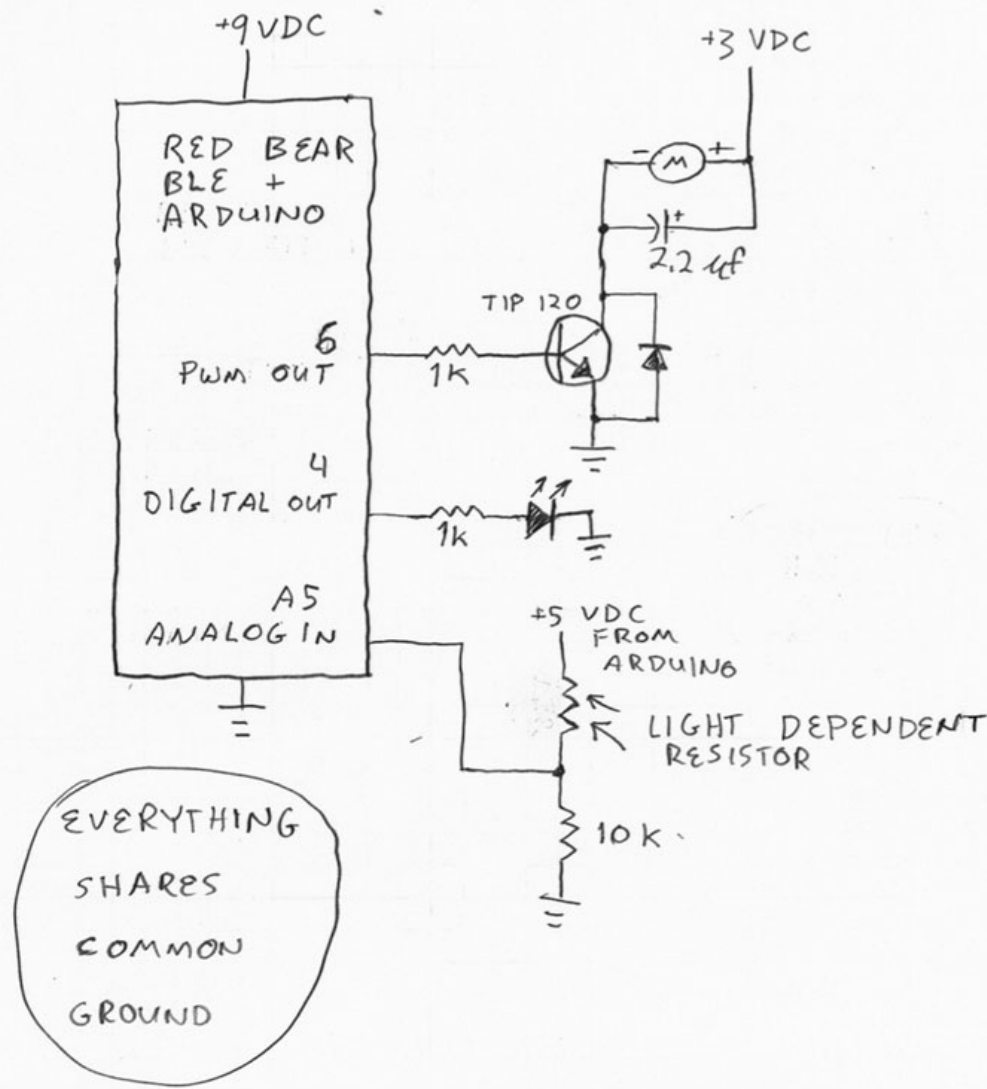 +9 VDC
+3 VDC
RED BEAR
BLE +
ARDUINO
- M +
+
2.2 µf
TIP 120
6
PWM OUT
1K
4
DIGITAL OUT
1K
A5
ANALOG IN
+5 VDC
FROM
ARDUINO
LIGHT DEPENDENT
RESISTOR
10K
EVERYTHING
SHARES
COMMON
GROUND